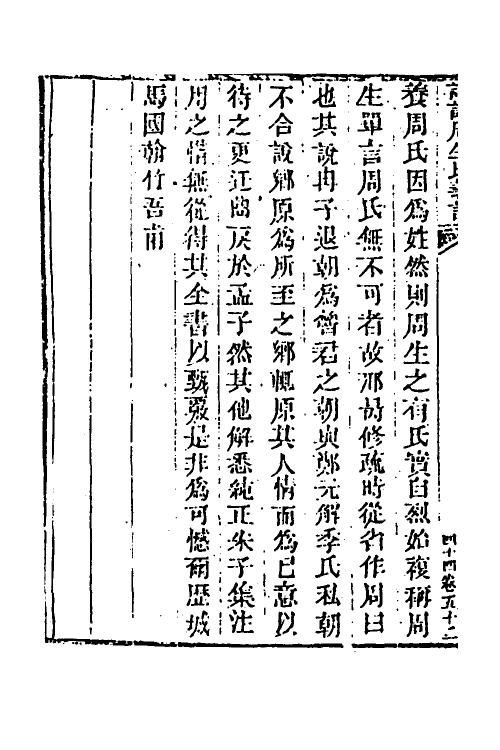 養周氏因為姓然則周生之有氏實自烈始複稱周
生單言周氏無不可者故邢昺修疏時從省作周曰
也其說冉子退朝為魯君之朝與鄭元解季氏私朝
不合說鄉原為所至之鄉輒原其人情而為已意以
待之更迂曲戾於孟子然其他解悉純正朱子集注
用之惜無從得其全書以甄覈是非為可憾爾歷城
馬國翰竹吾甫